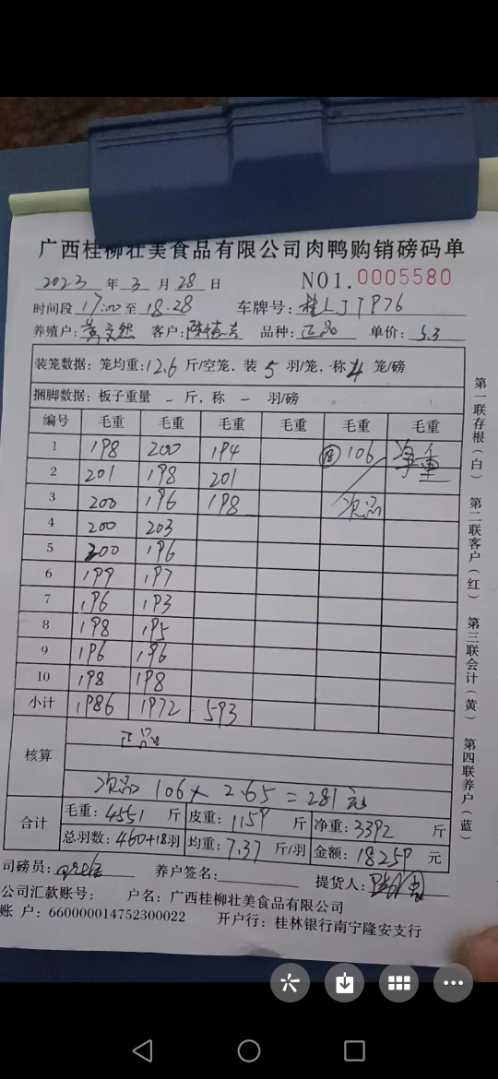 广西桂柳壮美食品有限公司肉鸭购销磅码单
2023 年 3 月 28 日 NO1.0005580
时间段 17:00 至 18:28 车牌号:
养殖户: 客户: 品种: 正品 单价: 5.3
装笼数据: 笼均重: 12.6 斤/空笼, 装 5 羽/笼, 称 4 笼/磅
捆脚数据: 板子重量 - 斤, 称 - 羽/磅
编号 毛重 毛重 毛重 毛重 毛重 毛重
1 198 200 194 106 净重
2 201 198 201
3 200 196 198 次品
4 200 203
5 200 196
6 199 197
7 196 193
8 198 195
9 196 196
10 198 198
小计 1986 1972 593
核算 正品
次品 106 × 2.65 = 281元
合计 毛重: 4551 斤 皮重: 1159 斤 净重: 3392 斤
总羽数: 460+18羽 均重: 7.37 斤/羽 金额: 18259 元
司磅员: 养户签名: 提货人:
公司汇款账号: 户名: 广西桂柳壮美食品有限公司
账 户: 660000014752300022 开户行: 桂林银行南宁隆安支行
第一联存根(白)
第二联客户(红)
第三联会计(黄)
第四联养户(蓝)